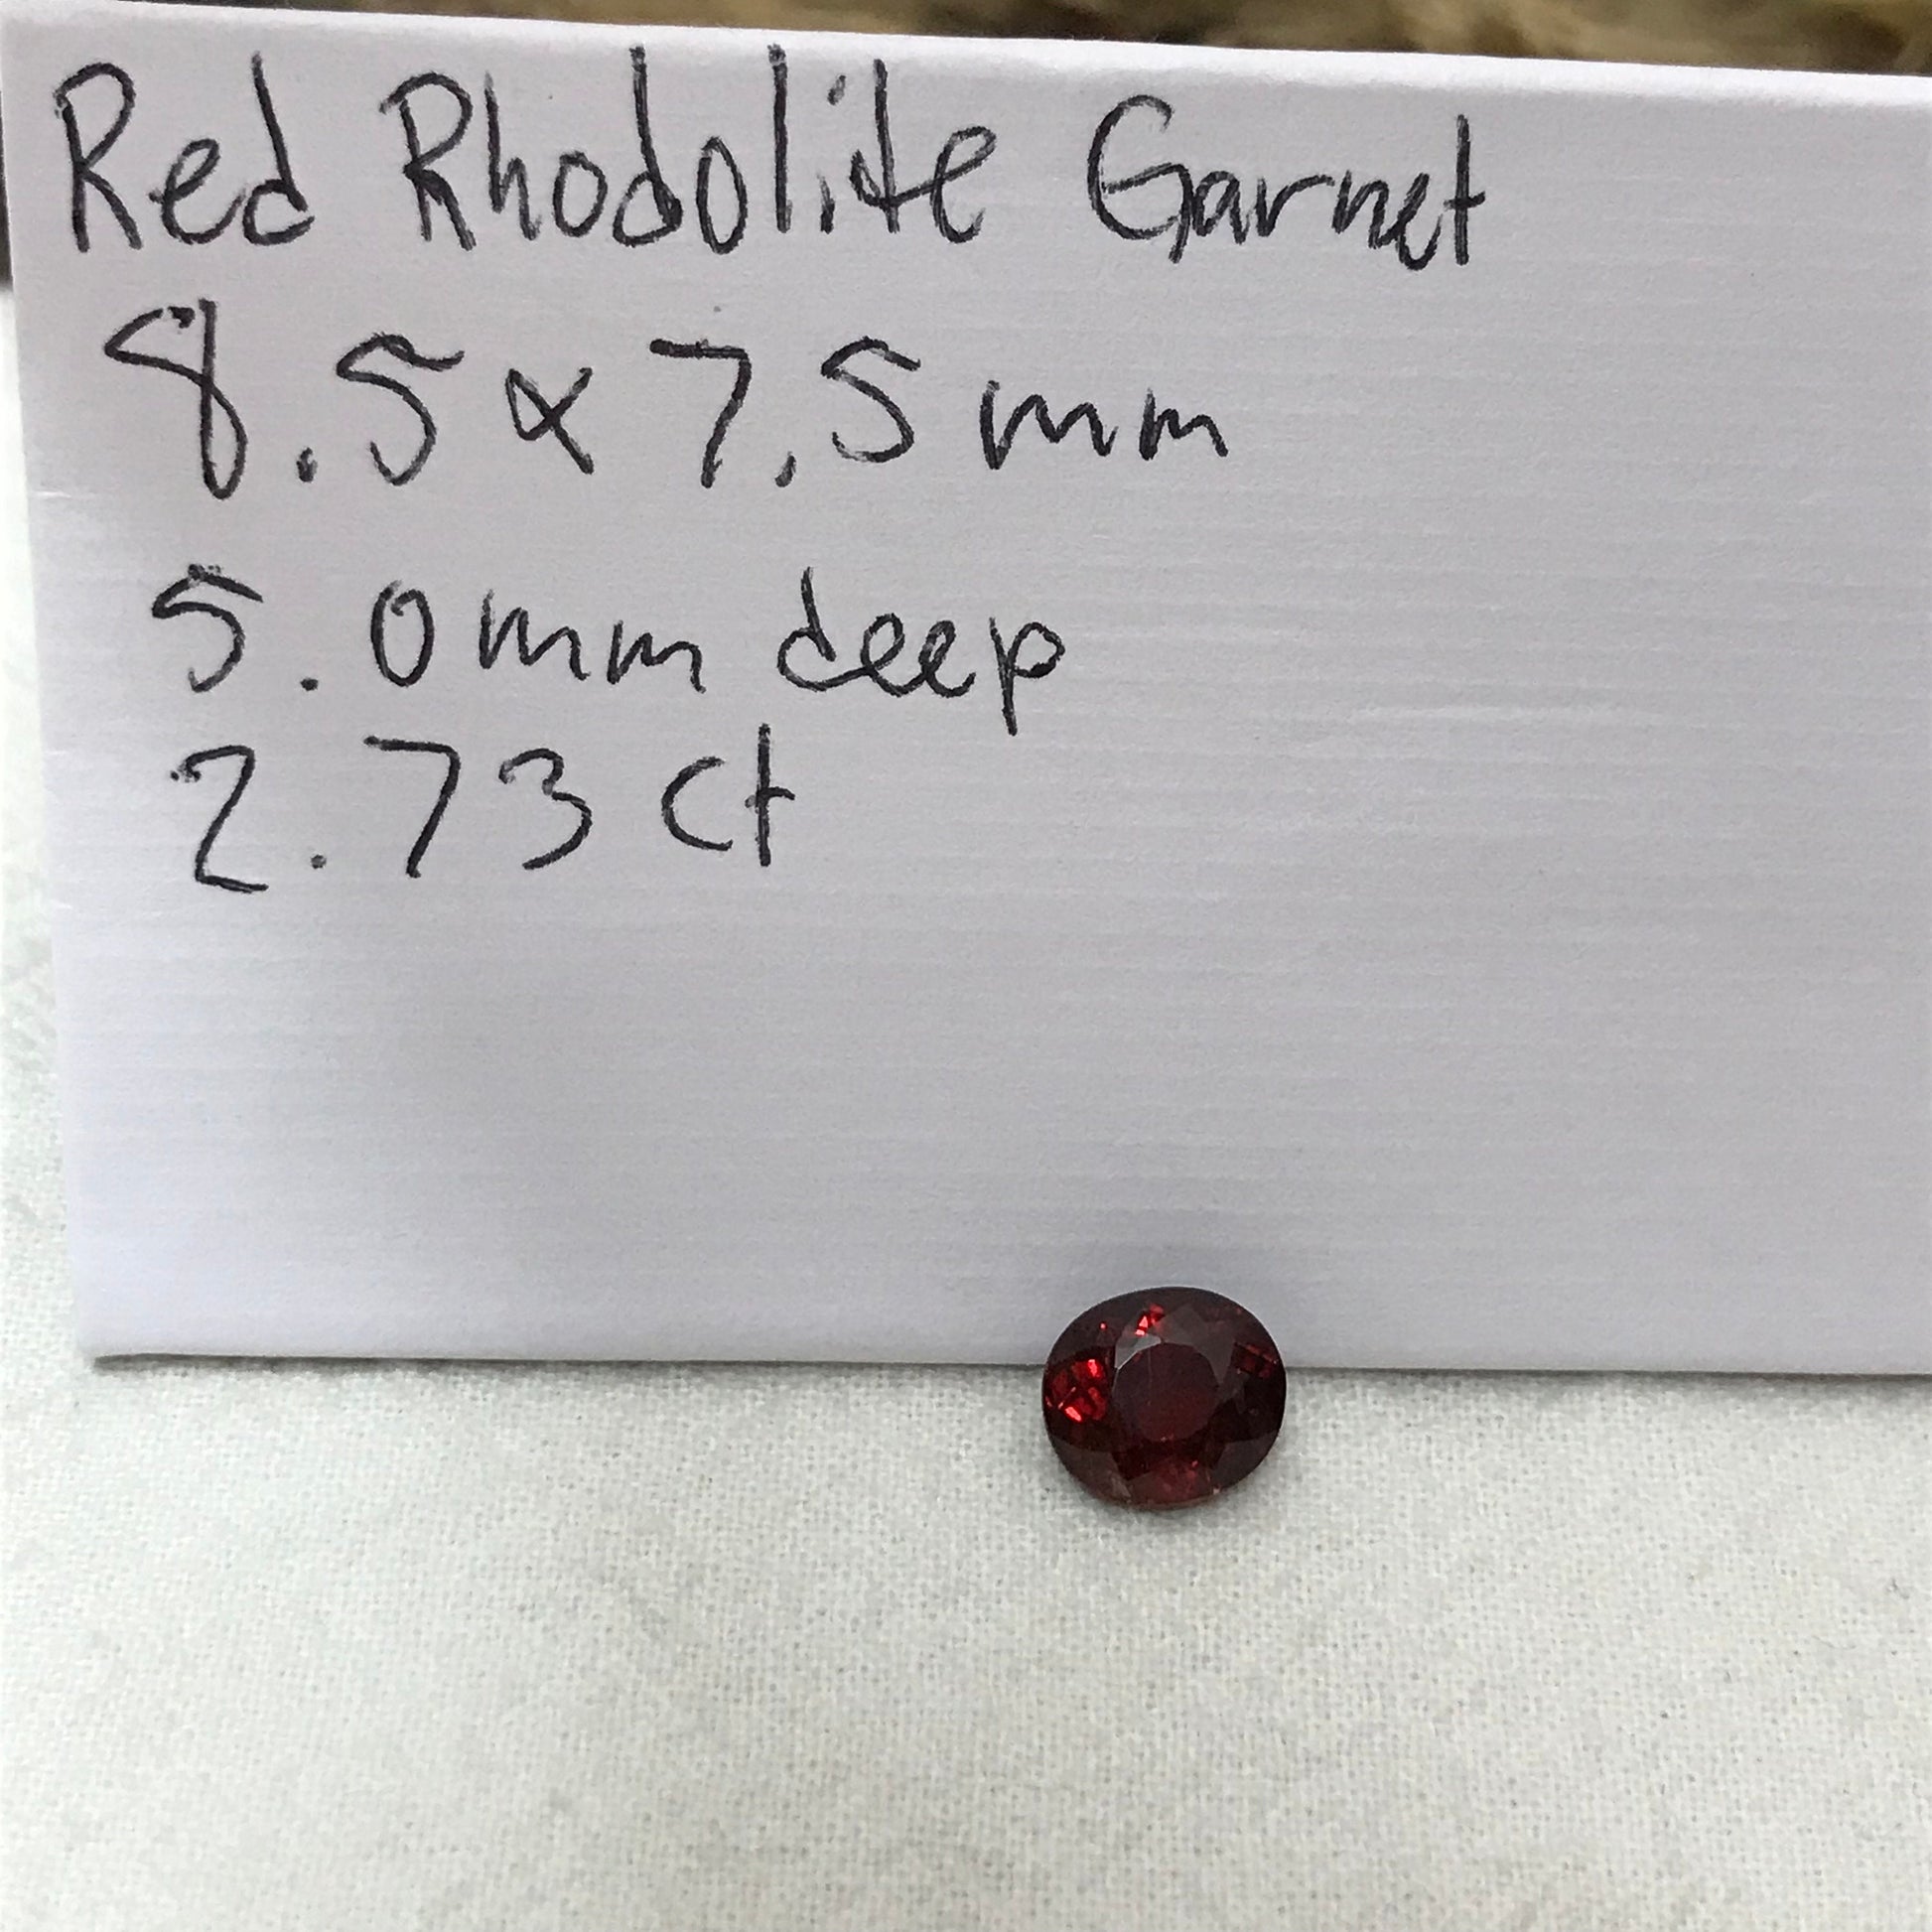 Red Rhodolite Garnet
8.5 x 7.5 mm
5.0 mm deep
2.73 ct